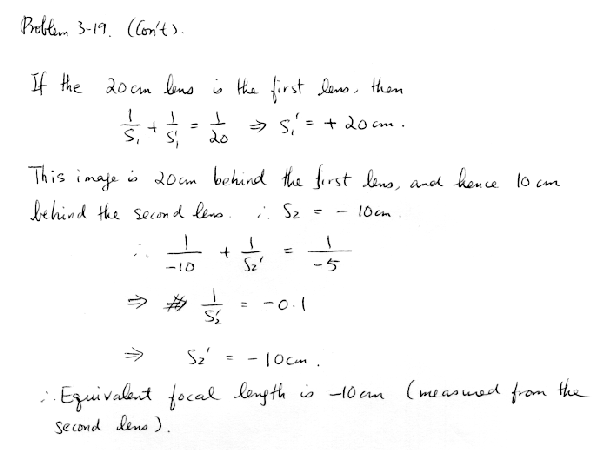 Problem 3-19. (Con't).
If the 20cm lens is the first lens, then
1/S₁ + 1/S₁' = 1/20 ⇒ S₁' = + 20 cm.
This image is 20cm behind the first lens, and hence 10 cm
behind the second lens. ∴ S₂ = - 10cm.
∴ 1/-10 + 1/S₂' = 1/-5
⇒ 1/S₂' = -0.1
⇒ S₂' = - 10cm.
∴ Equivalent focal length is -10cm (measured from the
second lens).